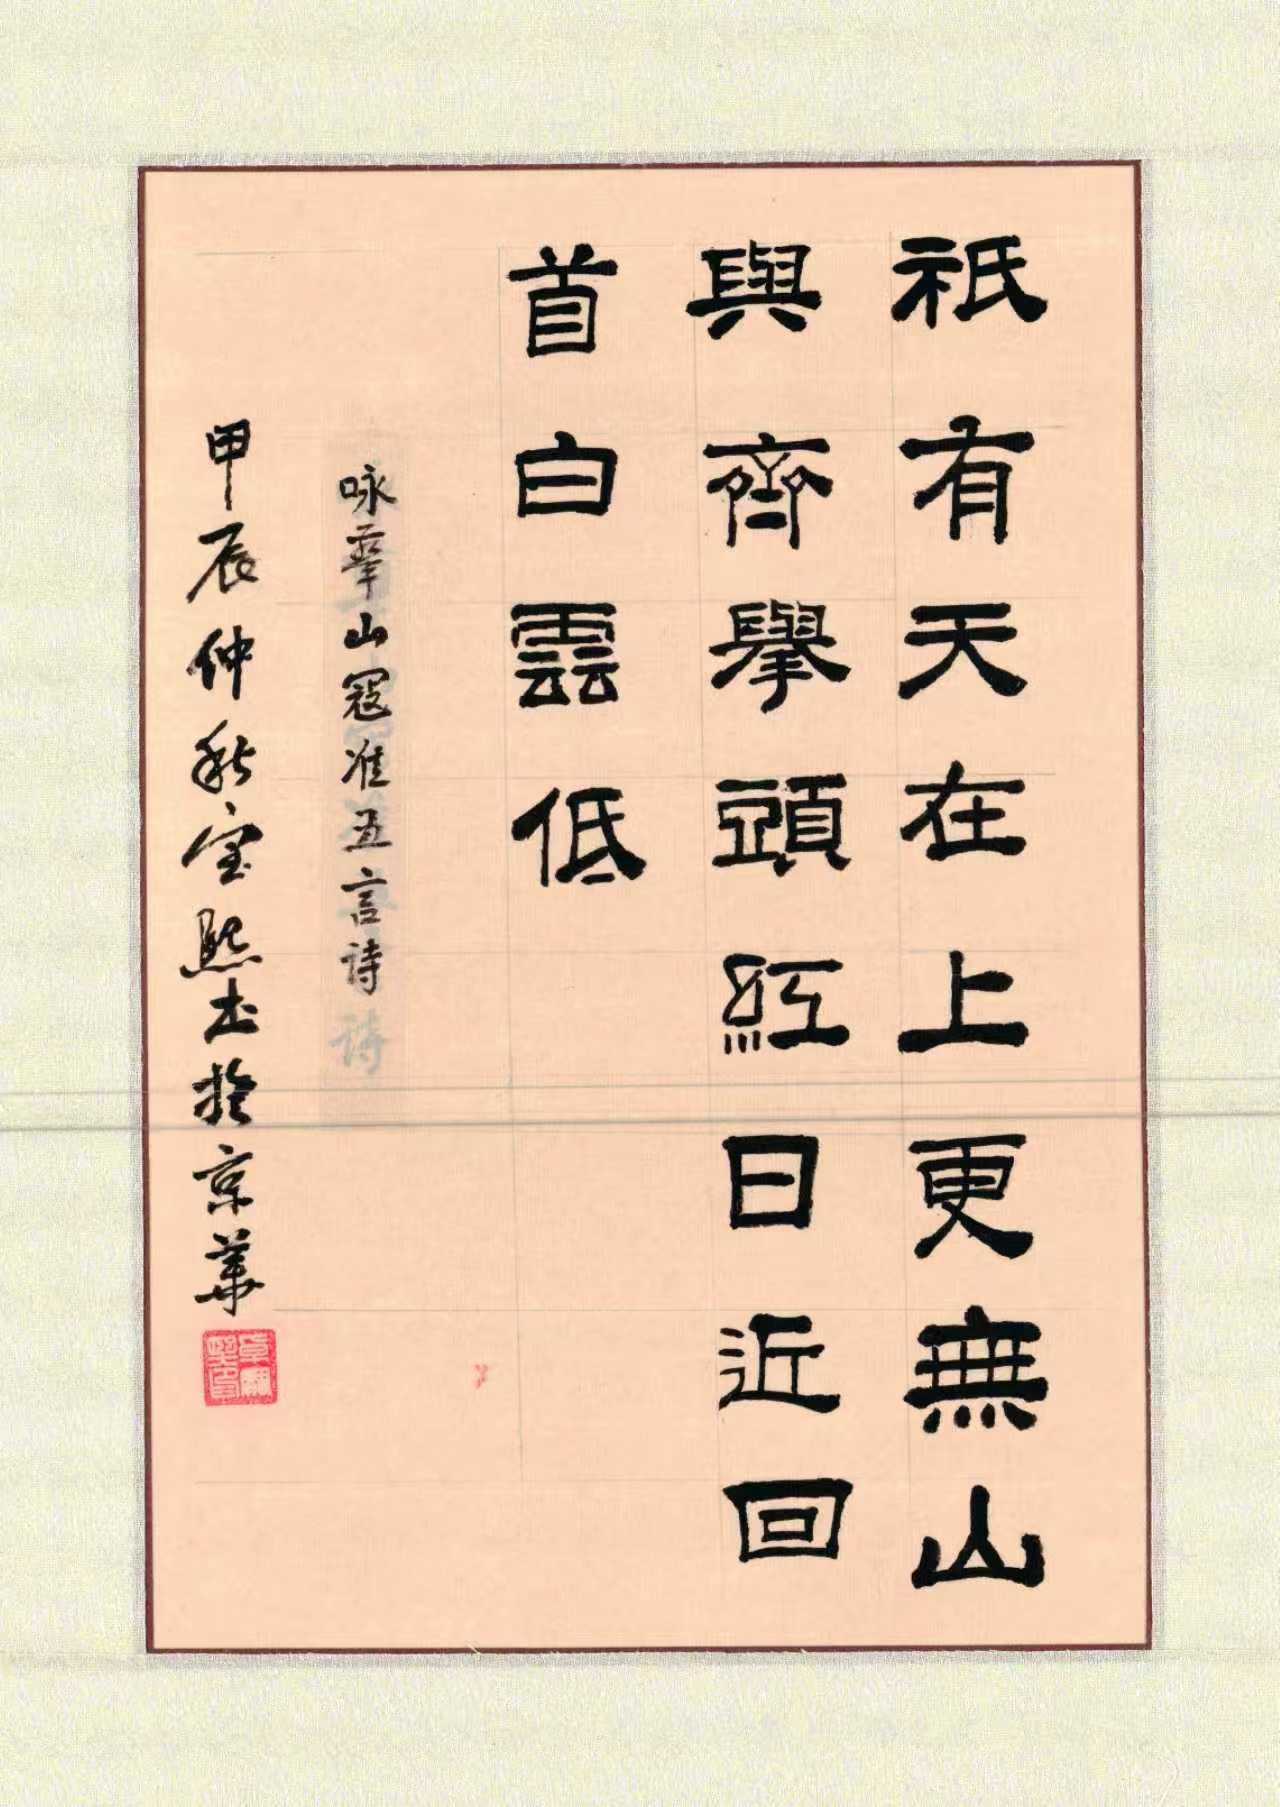 祇有天在上更無山
與齊舉頭紅日近回
首白雲低
咏華山寇准五言詩
詩
甲辰仲秋宝熙书於京華